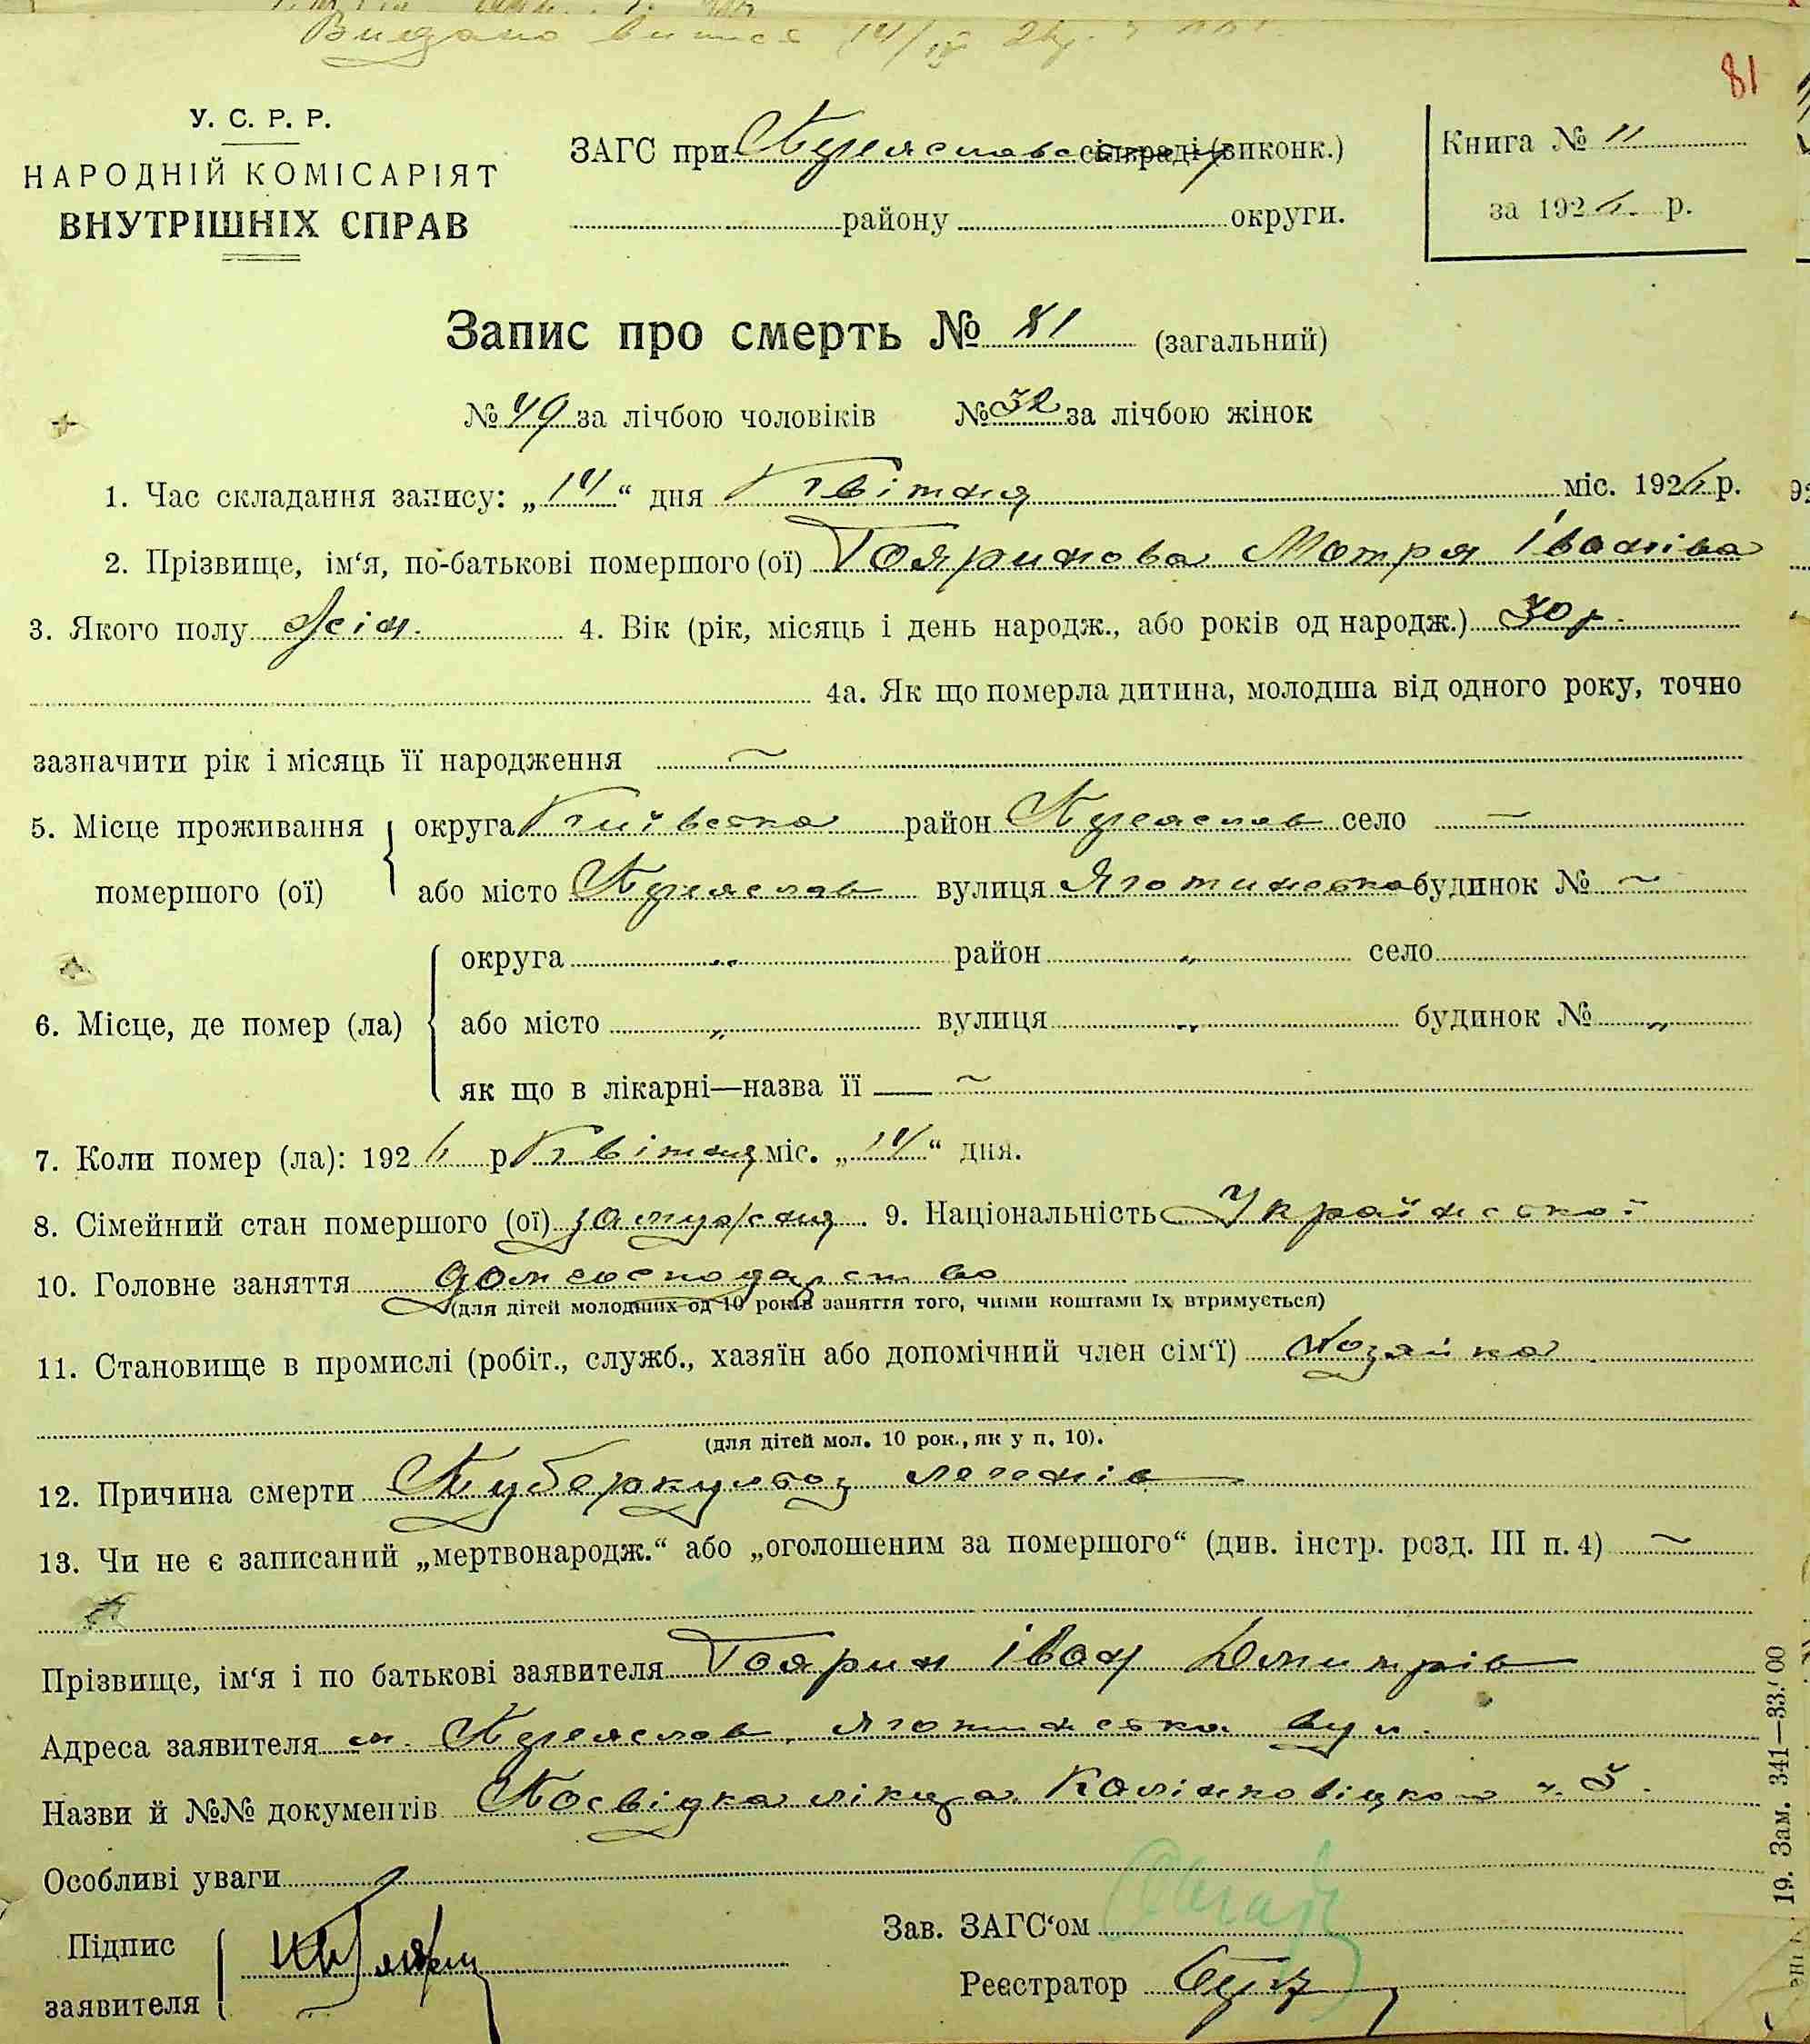 Видано
81
У. С. Р. Р.
НАРОДНІЙ КОМІСАРІЯТ
ВНУТРІШНІХ СПРАВ
ЗАГС при Переяславс сільраді (виконк.)
району округи.
Книга № 11
за 192 р.
Запис про смерть № 81 (загальний)
№ 49 за лічбою чоловіків № 32 за лічбою жінок
1. Час складання запису: „14“ дня Квітня міс. 192 р.
2. Прізвище, ім‘я, по-батькові помершого (ої) Гояринова Мотря Іванівна
3. Якого полу жін. 4. Вік (рік, місяць і день народж., або років од народж.) 30 р.
4а. Як що померла дитина, молодша від одного року, точно
зазначити рік і місяць її народження ~
5. Місце проживання помершого (ої) округа Київська район Переяслав село —
або місто Переяслав вулиця Яготинська будинок № ~
6. Місце, де помер (ла) округа „ район „ село
або місто „ вулиця „ будинок № „
як що в лікарні—назва її — ~
7. Коли помер (ла): 192 р Квітня міс. „14“ дня.
8. Сімейний стан помершого (ої) замужня 9. Національність Української
10. Головне заняття домгосподарство
(для дітей молодших од 10 років заняття того, чиїми коштами їх втримується)
11. Становище в промислі (робіт., служб., хазяїн або допомічний член сім‘ї) Хозяйка
(для дітей мол. 10 рок., як у п. 10).
12. Причина смерти Туберкульоз легенів
13. Чи не є записаний „мертвонародж.“ або „оголошеним за помершого“ (див. інстр. розд. III п. 4) ~
Прізвище, ім‘я і по батькові заявителя Гоярин Іван Дмитрів
Адреса заявителя м. Переяслав, Яготинська вул.
Назви й №№ документів Посвідка лікаря ч. 5.
Особливі уваги
Підпис заявителя
Зав. ЗАГС‘ом
Реєстратор
19. Зам. 341—33.000